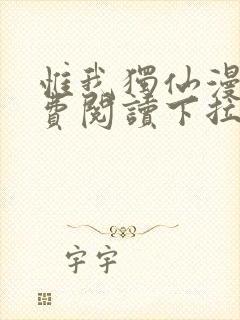 惟我獨仙漫
費閱讀下拉
字宇